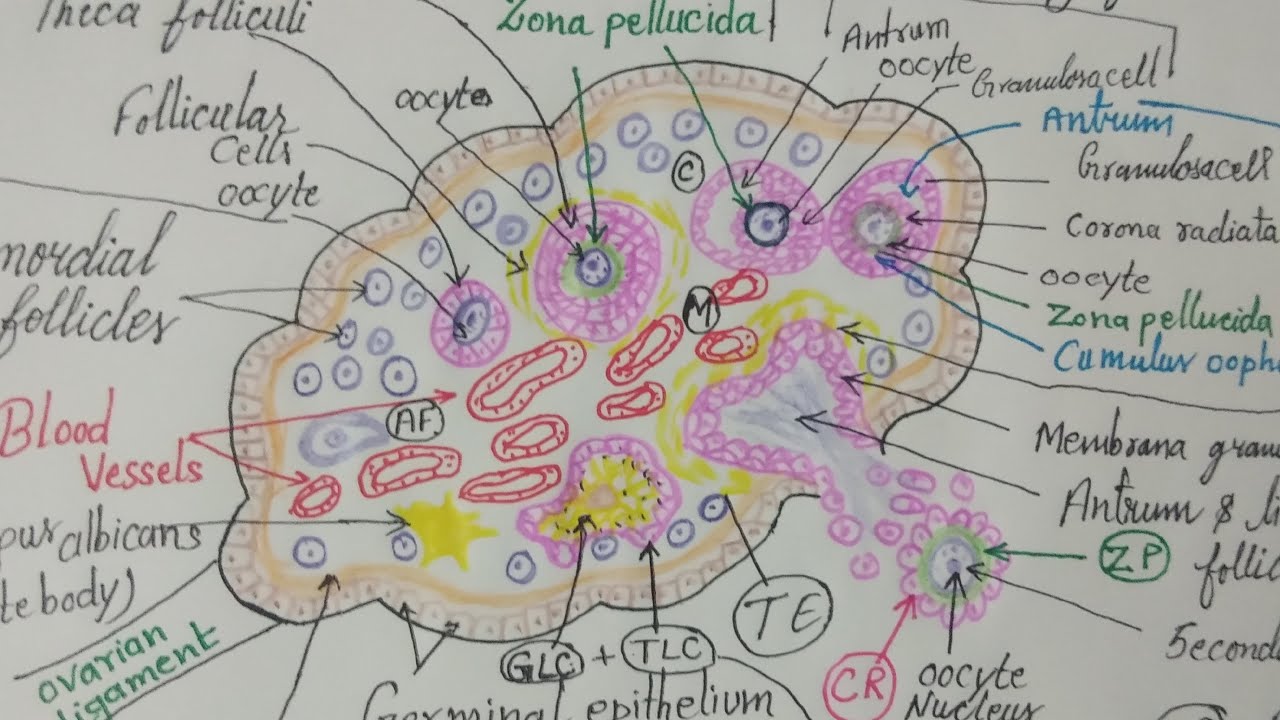 Theca folliculi
Zona pellucida
Antrum
oocyte
Granulosa cell
Follicular
Cells
oocyte
oocytes
Antrum
Granulosa cell
Corona radiata
oocyte
Zona pellucida
Cumulus ooph
mordial
follicles
C
M
AF
Blood
Vessels
Membrana granu
Antrum &
follic
pus albicans
te body)
ovarian
ligament
ZP
Seconda
TE
GLC + TLC
CR
oocyte
Nucleus
Germinal epithelium